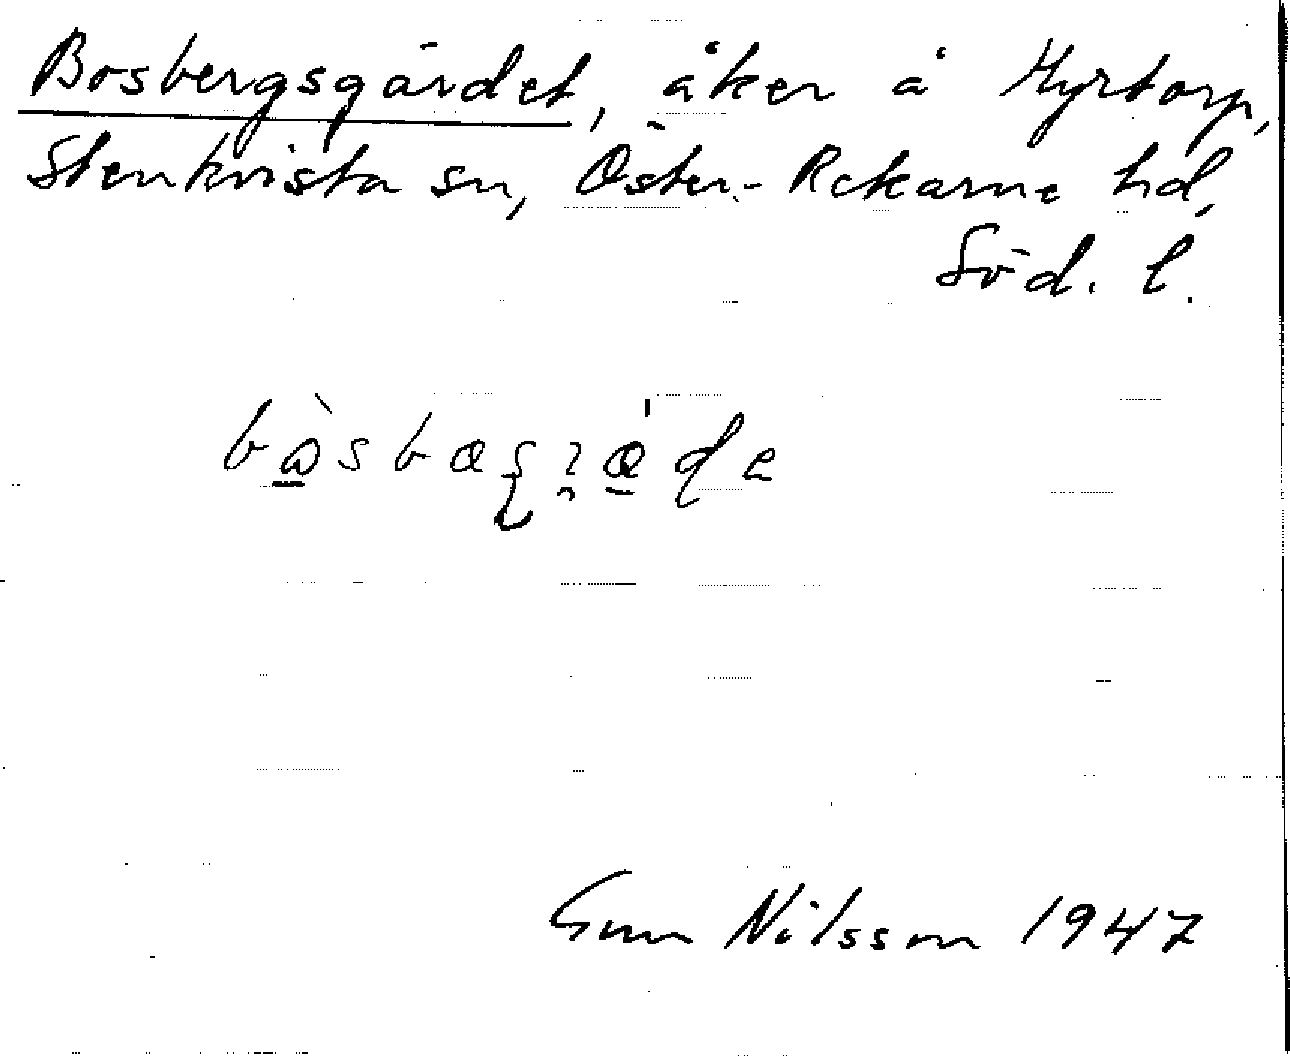 Bosbergsgärdet, åker å Myrtorp,
Stenkvista sn, Öster-Rekarne hd,
Söd. l.
Gun Nilsson 1947